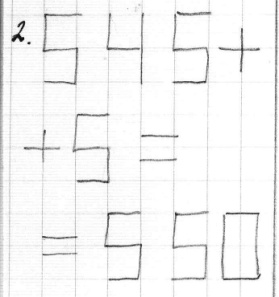 2. 545+
+5=
=550